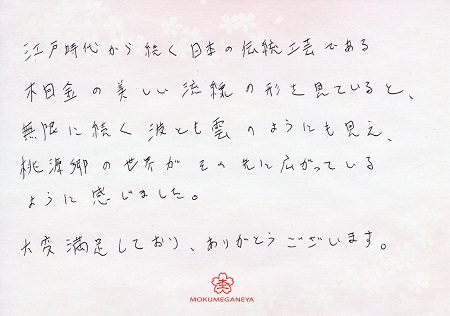 江戸時代から続く日本の伝統工芸である
木目金の美しい流線の形を見ていると、
無限に続く波とも雲のようにも見え、
桃源郷の世界がその先に広がっている
ように感じました。
大変満足しており、ありがとうございます。
MOKUMEGANEYA